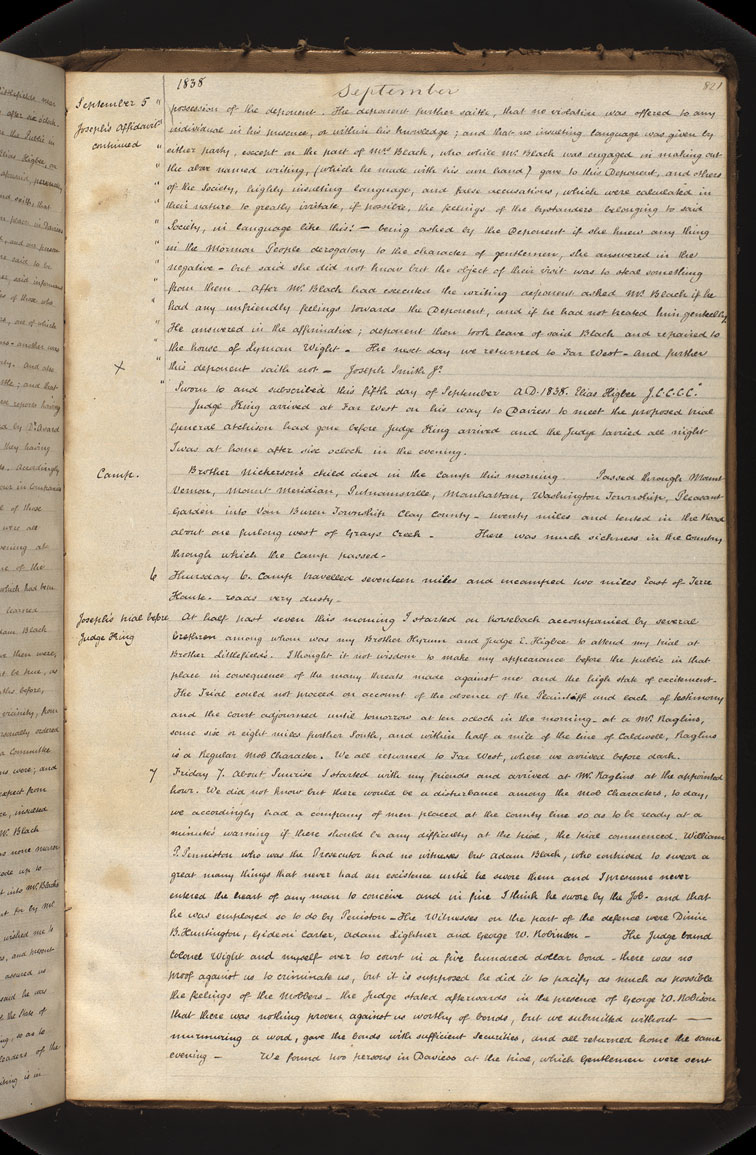 1838
September
821
September 5 "
Joseph's Affidavit "
continued "
possession of the deponent. The deponent further saith, that no violation was offered to any
individual in his presence, or within his knowledge; and that no insulting language was given by
either party, except on the part of Mrs Black, who while Mr Black was engaged in making out
the above named writing, (which he made with his own hand) gave to this Deponent, and others
of the Society, highly insulting language, and false accusations, which were calculated in
their nature to greatly irritate, if possible, the feelings of the bystanders belonging to said
Society, in language like this:— being asked by the Deponent if she knew any thing
in the Mormon People derogatory to the character of gentlemen, she answered in the
negative - but said she did not know but the object of their visit was to steal something
from them. After Mr Black had executed the writing deponent asked Mr Black if he
had any unfriendly feelings towards the Deponent, and if he had not treated him genteelly
He answered in the affirmative; deponent then took leave of said Black and repaired to
the house of Lyman Wight - The next day we returned to Far West - And further
X
this deponent saith not - Joseph Smith Jr
"Sworn to and subscribed this fifth day of September A.D. 1838. Elias Higbee J.C.C.C."
Judge King arrived at Far West on his way to Daviess to meet the proposed trial
General Atchison had gone before Judge King arrived and the Judge tarried all night
I was at home after six oclock in the evening.
Camp.
Brother Nickerson's child died in the Camp this morning Passed through Mount
Vernon, Mount Meridian, Putnamville, Manhattan, Washington Township, Pleasant
Garden into Van Buren Township Clay County - twenty miles and tented in the Road
about one furlong west of Grays Creek - There was much sickness in the Country
through which the Camp passed -
6 Thursday 6. Camp travelled seventeen miles and encamped two miles East of Terre
Haute. roads very dusty -
Joseph's trial before
Judge King
At half past seven this morning I started on horseback accompanied by several
brethren among whom was my Brother Hyrum and Judge E. Higbee to attend my trial at
Brother Littlefield's. I thought it not wisdom to make my appearance before the public in that
place in consequence of the many threats made against me and the high state of excitement -
The Trial could not proceed on account of the absence of the Plaintiff and lack of testimony
and the court adjourned until tomorrow at ten oclock in the morning - at a Mr Raglins,
some six or eight miles further South, and within half a mile of the line of Caldwell, Raglins
is a Regular Mob Character. We all returned to Far West, where we arrived before dark.
7 Friday 7. About Sunrise I started with my friends and arrived at Mr Raglins at the appointed
hour. We did not know but there would be a disturbance among the mob Characters, to day,
we accordingly had a company of men placed at the county line so as to be ready at a
minute's warning if there should be any difficulty at the trial, the trial commenced. William
P. Penniston who was the Prosecutor had no witnesses but Adam Black, who contrived to swear a
great many things that never had an existence until he swore them and I presume never
entered the heart of any man to conceive and in fine I think he swore by the Job - and that
he was employed so to do by Peniston - The Witnesses on the part of the defence were Dimic
B. Huntington, Gideon Carter, Adam Lightner and George W. Robinson - The Judge bound
Colonel Wight and myself over to court in a five hundred dollar bond - there was no
proof against us to criminate us, but it is supposed he did it to pacify as much as possible
the feelings of the Mobbers - the Judge stated afterwards in the presence of George W. Robinson
that there was nothing proven against us worthy of bonds, but we submitted without —
murmuring a word, gave the bonds with sufficient Securities, and all returned home the same
evening - We found two persons in Daviess at the trial, which Gentlemen were sent